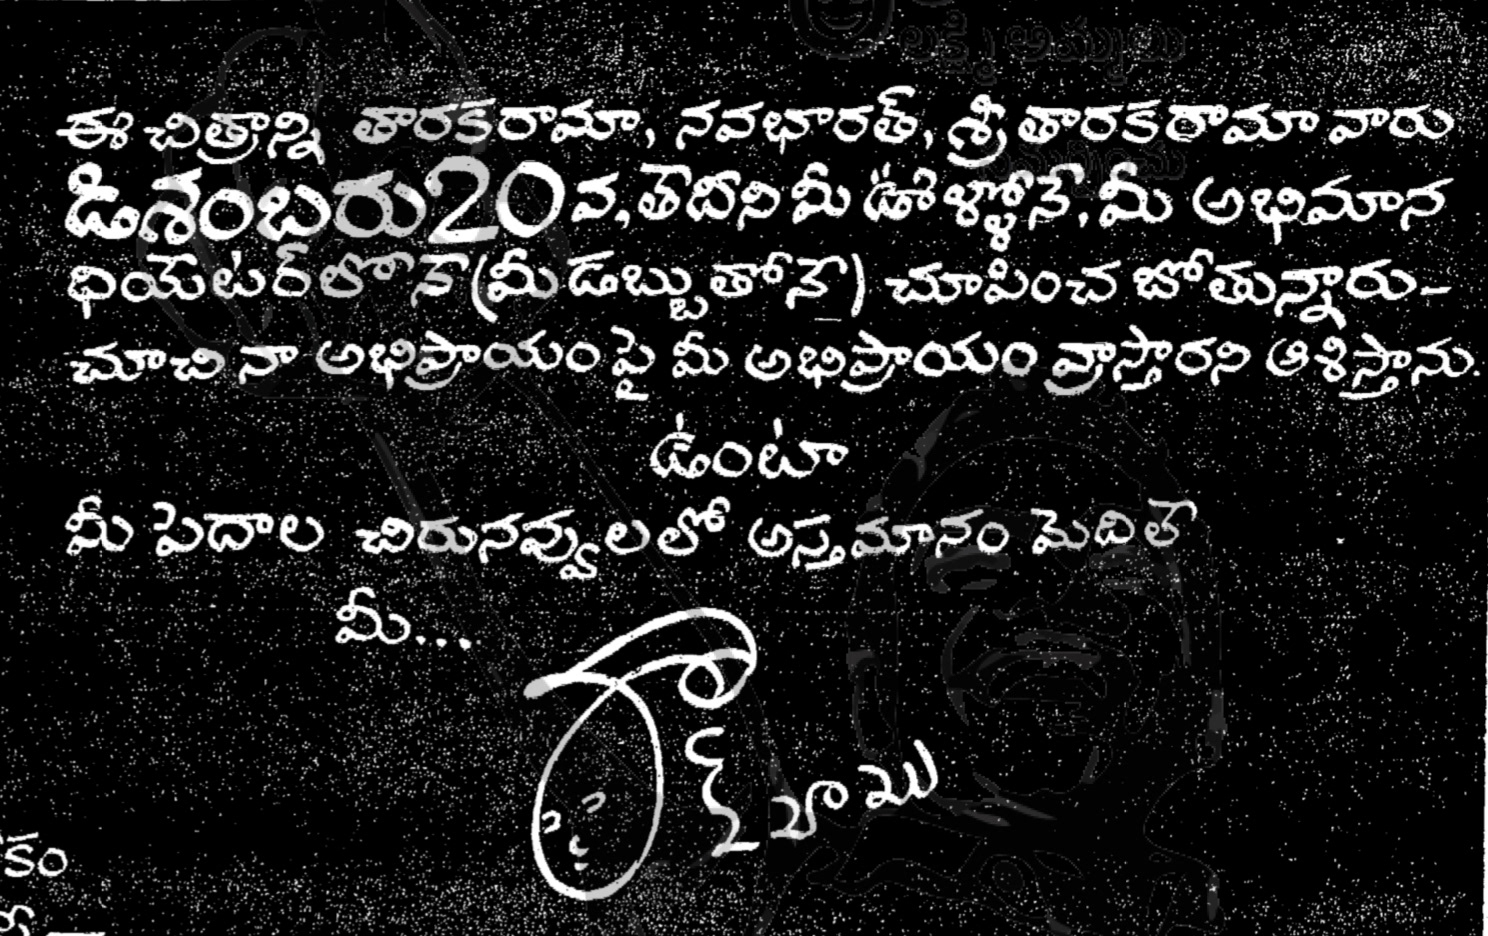 లక్ష్మి అమ్మలు
ఈ చిత్రాన్ని తారకరామా, నవభారత్, శ్రీ తారకరామా వారు
డిశంబరు 20 వ, తేదీని మీ ఊళ్ళోనే, మీ అభిమాన
థియేటర్‌లోనే (మీ డబ్బుతోనే) చూపించ బోతున్నారు-
చూచి నా అభిప్రాయం పై మీ అభిప్రాయం వ్రాస్తారని ఆశిస్తాను.
ఉంటా
మీ పెదాల చిరునవ్వులలో అస్తమానం మెదిలే
మీ...